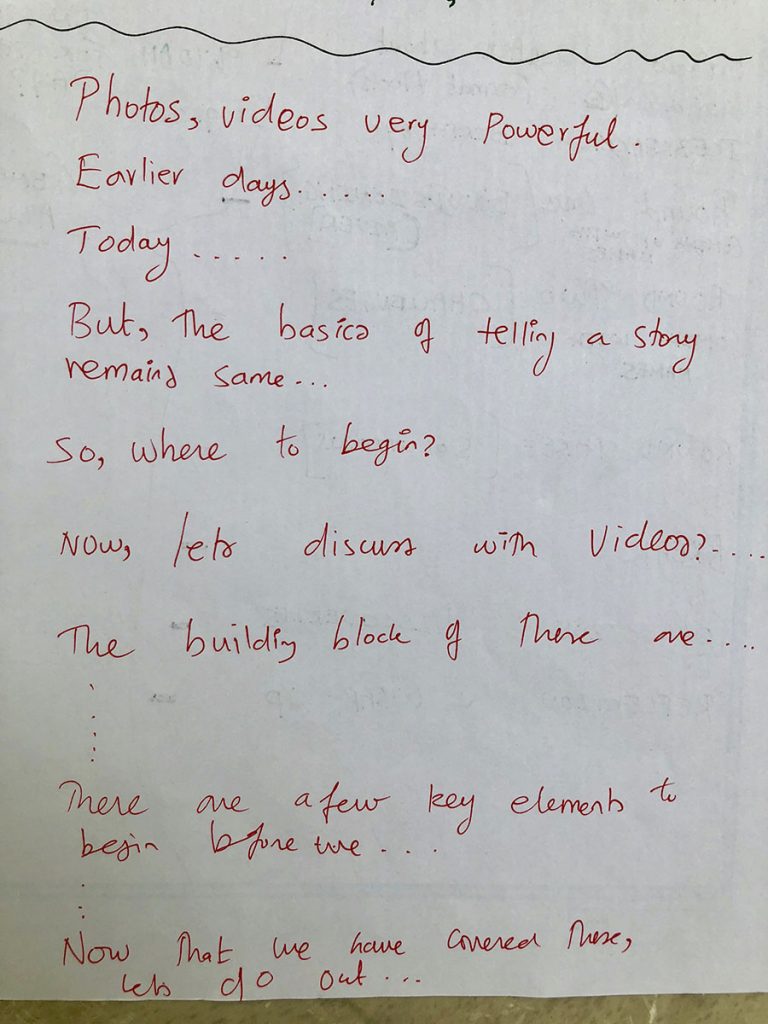 Photos, videos very Powerful.
Earlier days......
Today .....
But, The basics of telling a story
remains same...
So, where to begin?
Now, lets discuss with Videos?....
The building block of these are....
There are a few key elements to
begin before we ....
Now That we have covered these,
lets go out...